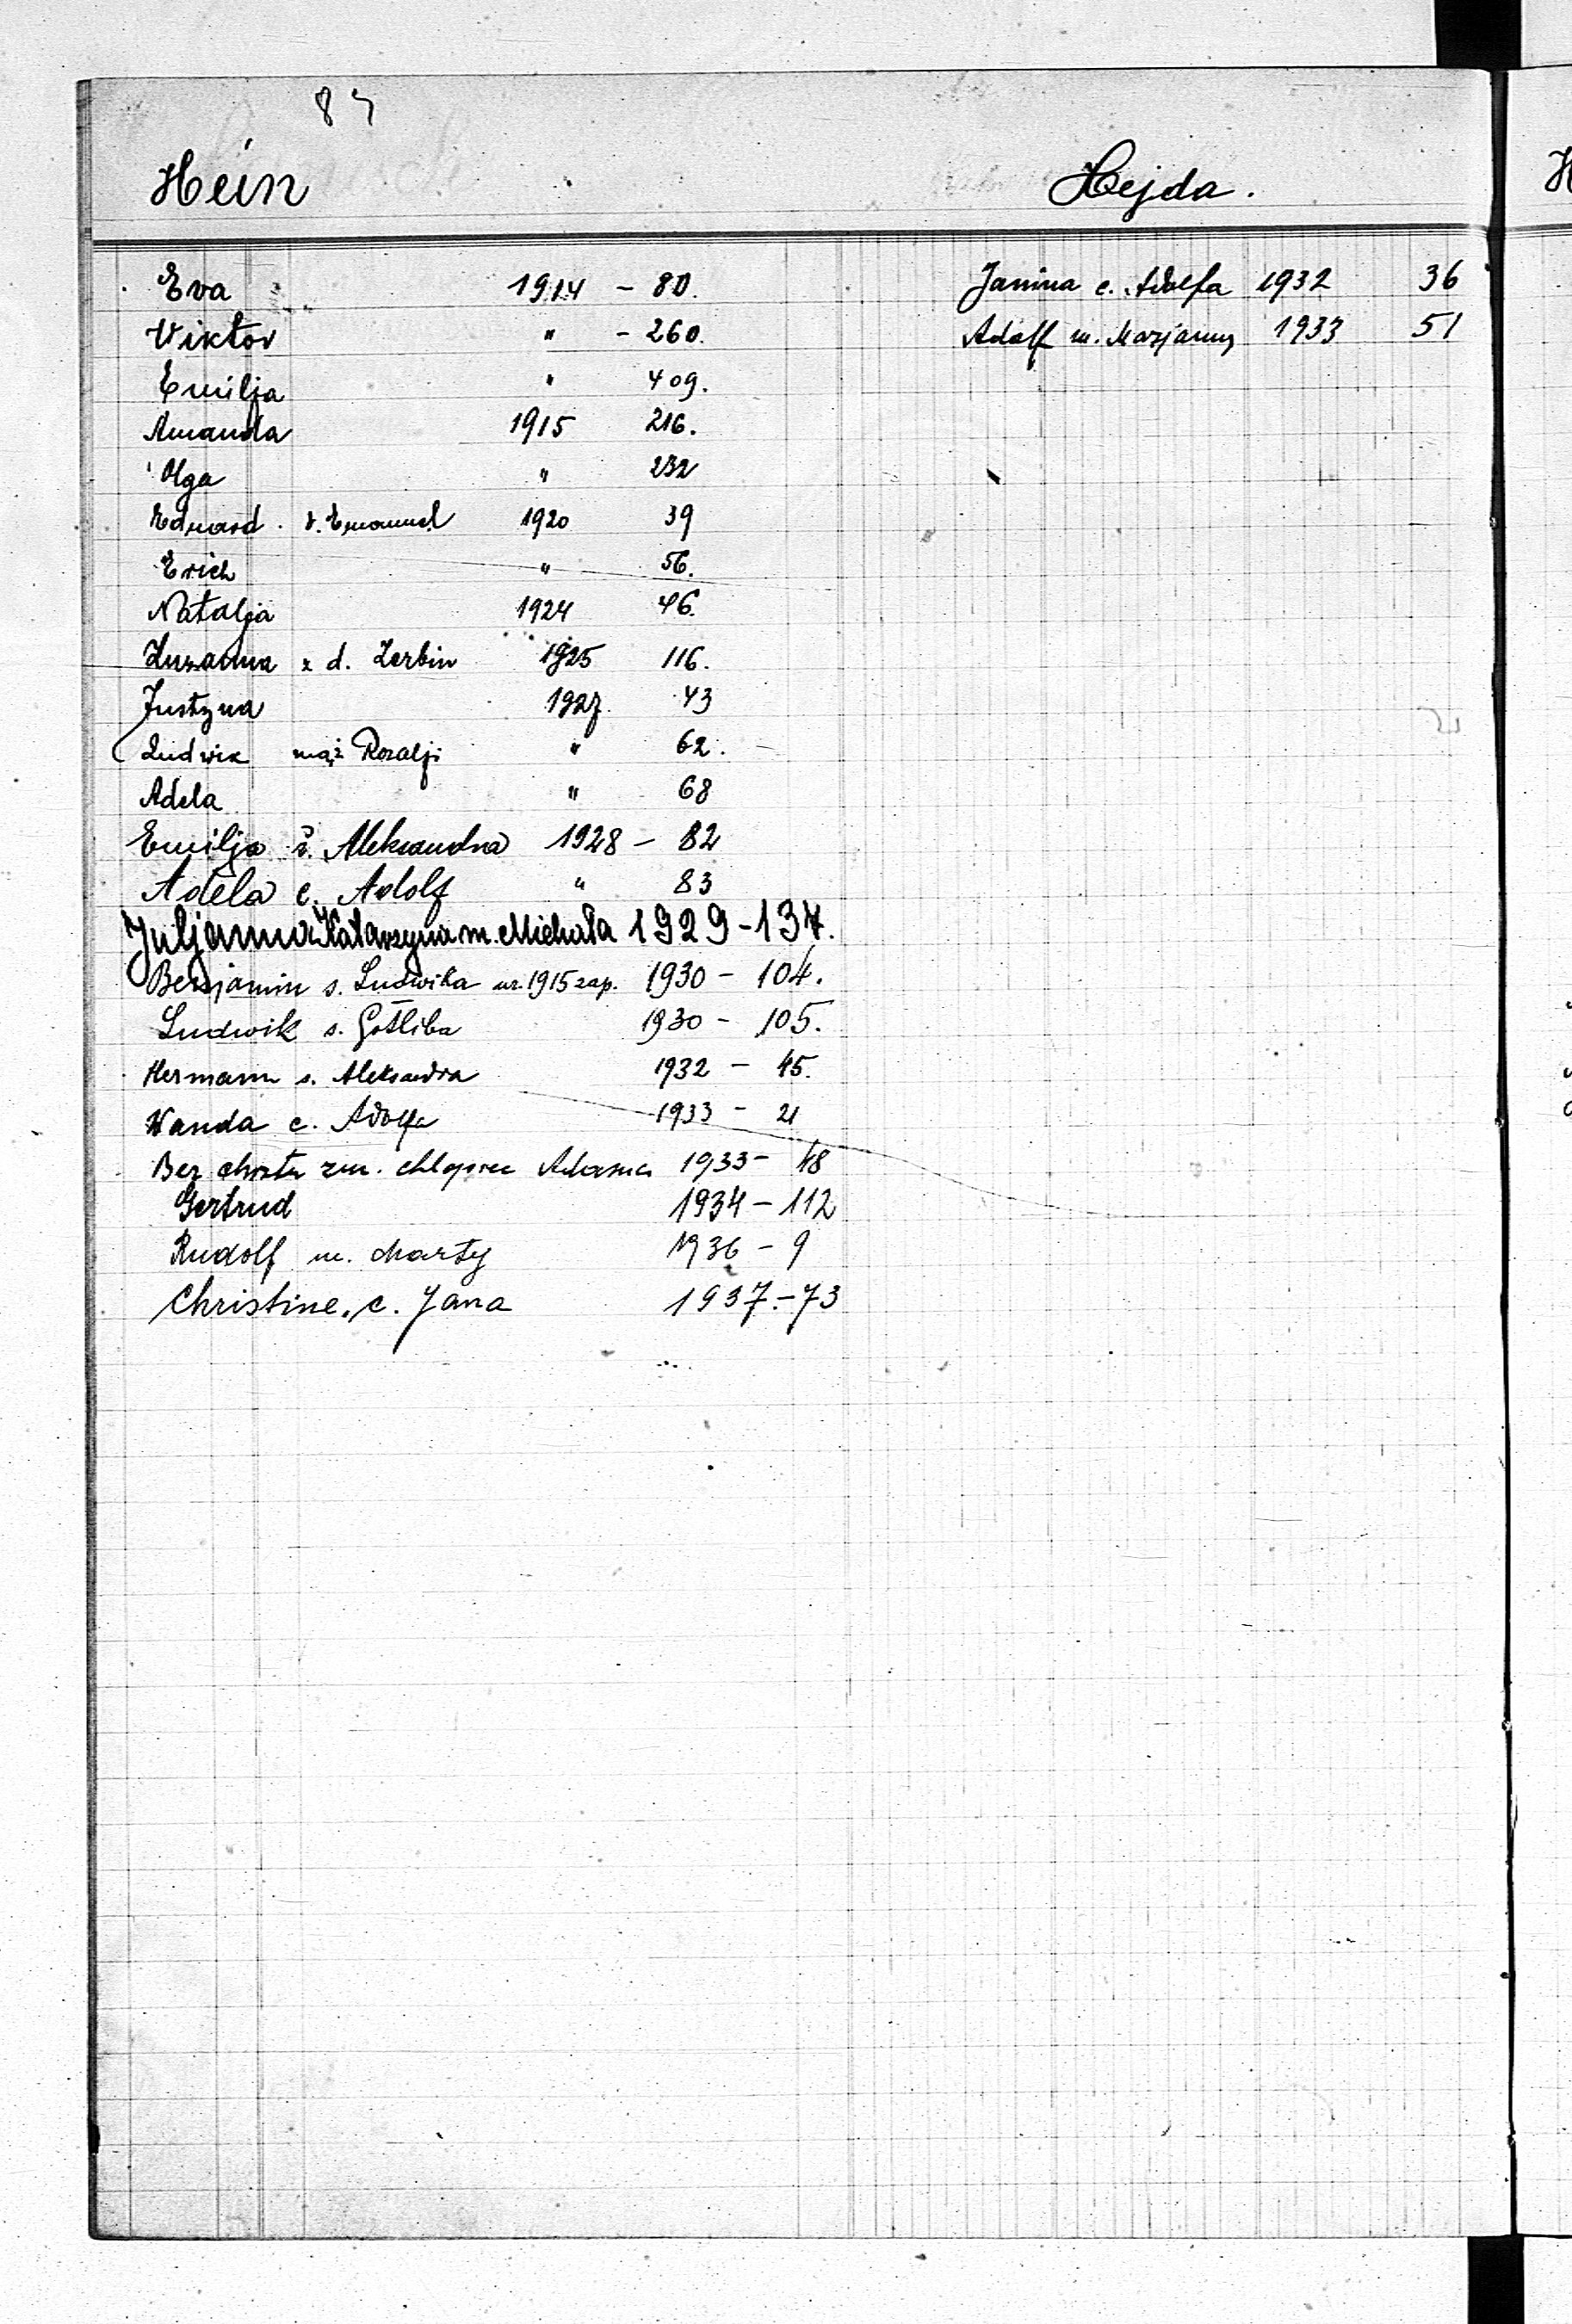 87
Hein
Eva 1914 - 80.
Viktor " - 260.
Emilja " 409.
Amanda 1915 216.
Olga " 232
Eduard . v. Emanuel 1920 39
Erich " 56.
Natalja 1924 46.
Zuzanna z d. Zerbin 1925 116.
Justyna 1927. 43
Ludwik mąż Rozalji " 62.
Adela " 68
Emilja ż. Aleksandra 1928 - 82
Adela c. Adolf " 83
Juljanna Katarzyna m. Michała 1929 - 137.
Benjamin s. Ludwika ur. 1915 zap. 1930 - 104.
Ludwik s. Gotliba 1930 - 105.
Hermann s. Aleksandra 1932 - 45.
Wanda c. Adolfa 1933 - 21
Bez chrztu zm. chłopiec Adama 1933 - 48
Gertrud 1934 - 112
Rudolf m. Marty 1936 - 9
Christine, c. Jana 1937. - 73
Hejda.
Janina c. Adolfa 1932 36
Adolf m. Marjanny 1933 51
H